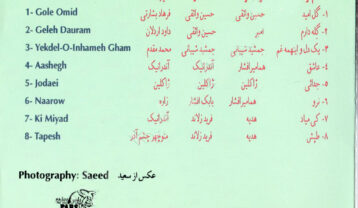 1- Gole Omid فرهاد بشارتی حسین واثقی حسین واثقی ۱- گل امید
2- Geleh Dauram داود اردلان حسین واثقی امیر ۲- گله دارم
3- Yekdel-O-Inhameh Gham محمد مقدم جمشید شیبانی جمشید شیبانی ۳- یک دل و اینهمه غم
4- Aashegh آندرانیک آندرانیک هما میرافشار ۴- عاشق
5- Jodaei ژاکلین ژاکلین ژاکلین ۵- جدائی
6- Naarow بابک افشار هما میرافشار ۶- نرو
7- Ki Miyad آندرانیک فرید زلاند هدیه ۷- کی میاد
8- Tapesh منوچهر چشم آذر فرید زلاند هدیه ۸- طپش
Photography: Saeed عکس از سعید
PARS